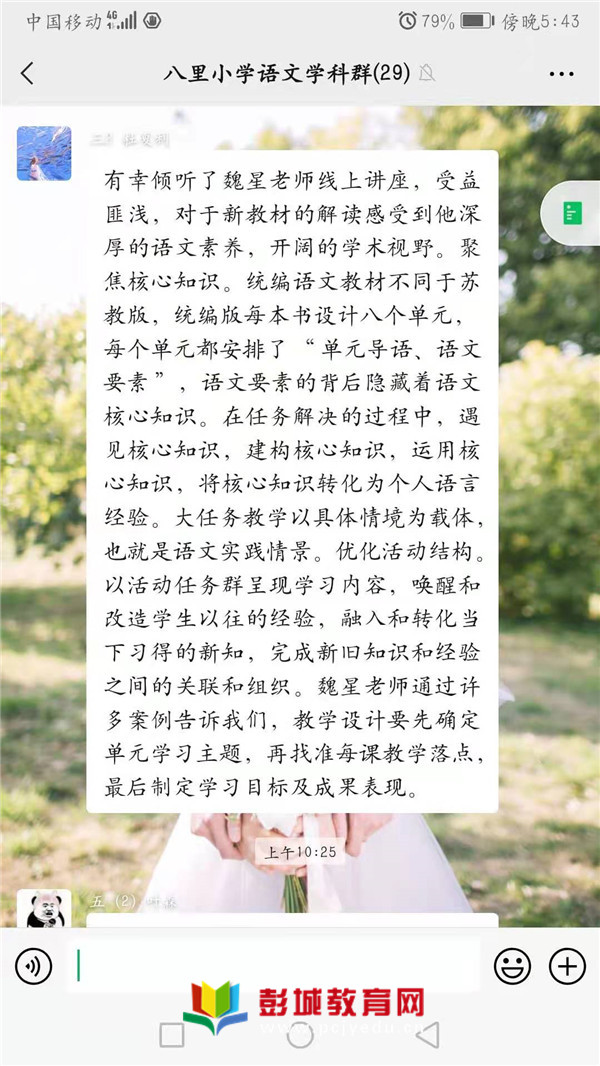 中国移动 4G
79% 傍晚5:43
八里小学语文学科群(29)
有幸倾听了魏星老师线上讲座，受益
匪浅，对于新教材的解读感受到他深
厚的语文素养，开阔的学术视野。聚
焦核心知识。统编语文教材不同于苏
教版，统编版每本书设计八个单元，
每个单元都安排了“单元导语、语文
要素”，语文要素的背后隐藏着语文
核心知识。在任务解决的过程中，遇
见核心知识，建构核心知识，运用核
心知识，将核心知识转化为个人语言
经验。大任务教学以具体情境为载体，
也就是语文实践情景。优化活动结构。
以活动任务群呈现学习内容，唤醒和
改造学生以往的经验，融入和转化当
下习得的新知，完成新旧知识和经验
之间的关联和组织。魏星老师通过许
多案例告诉我们，教学设计要先确定
单元学习主题，再找准每课教学落点，
最后制定学习目标及成果表现。
上午10:25
五（2）叶森
彭城教育网
www.pcjyedu.cn